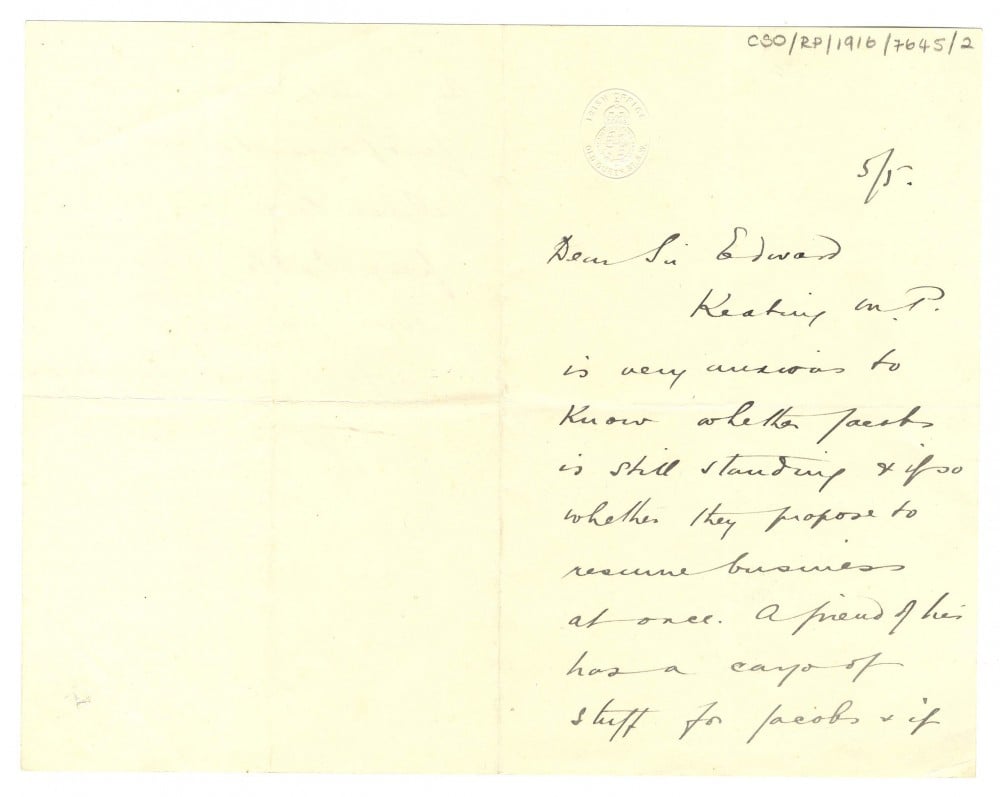 CSO/RP/1916/7645/2
IRISH OFFICE
OLD QUEEN ST. S.W.
5/5.
Dear Sir Edward
Keating M.P.
is very anxious to
know whether Jacobs
is still standing & if so
whether they propose to
resume business
at once. A friend of his
has a cargo of
stuff for Jacobs & if